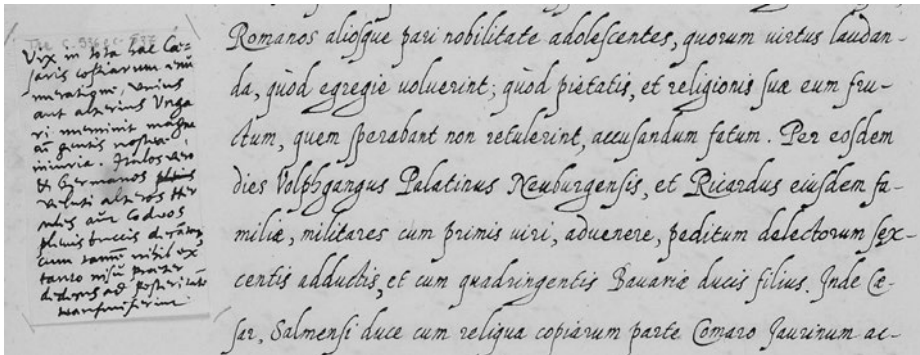 Vix in tota hac Cæ=
saris copiarum enu
meratione, unius
aut alterius Unga
ri meminit magna
cū gentis nostræ
iniuria. Italos vero
& Germanos
veluti alteros Her
cules aut Codros
plenis buccis
cum tamē nihil ex
tanto nisu præter
dedecus ad posteritatē
transmiserint.
Romanos aliosque pari nobilitate adolescentes, quorum uirtus laudan-
da, quòd egregie uoluerint; quòd pietatis, et religionis suæ eum fru-
ctum, quem sperabant non retulerint, accusandum fatum. Per eosdem
dies Volphgangus Palatinus Neuburgensis, et Ricardus eiusdem fa-
miliæ, militares cum primis uiri, aduenere, peditum delectorum sex-
centis adductis, et cum quadringentis Bauariæ ducis filius. Inde Cæ-
sar, Salmensi duce cum reliqua copiarum parte Comaro Jaurinum ac-